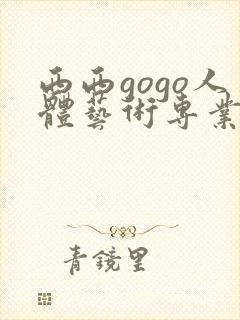 西西gogo人
體藝術専業
青鏡里